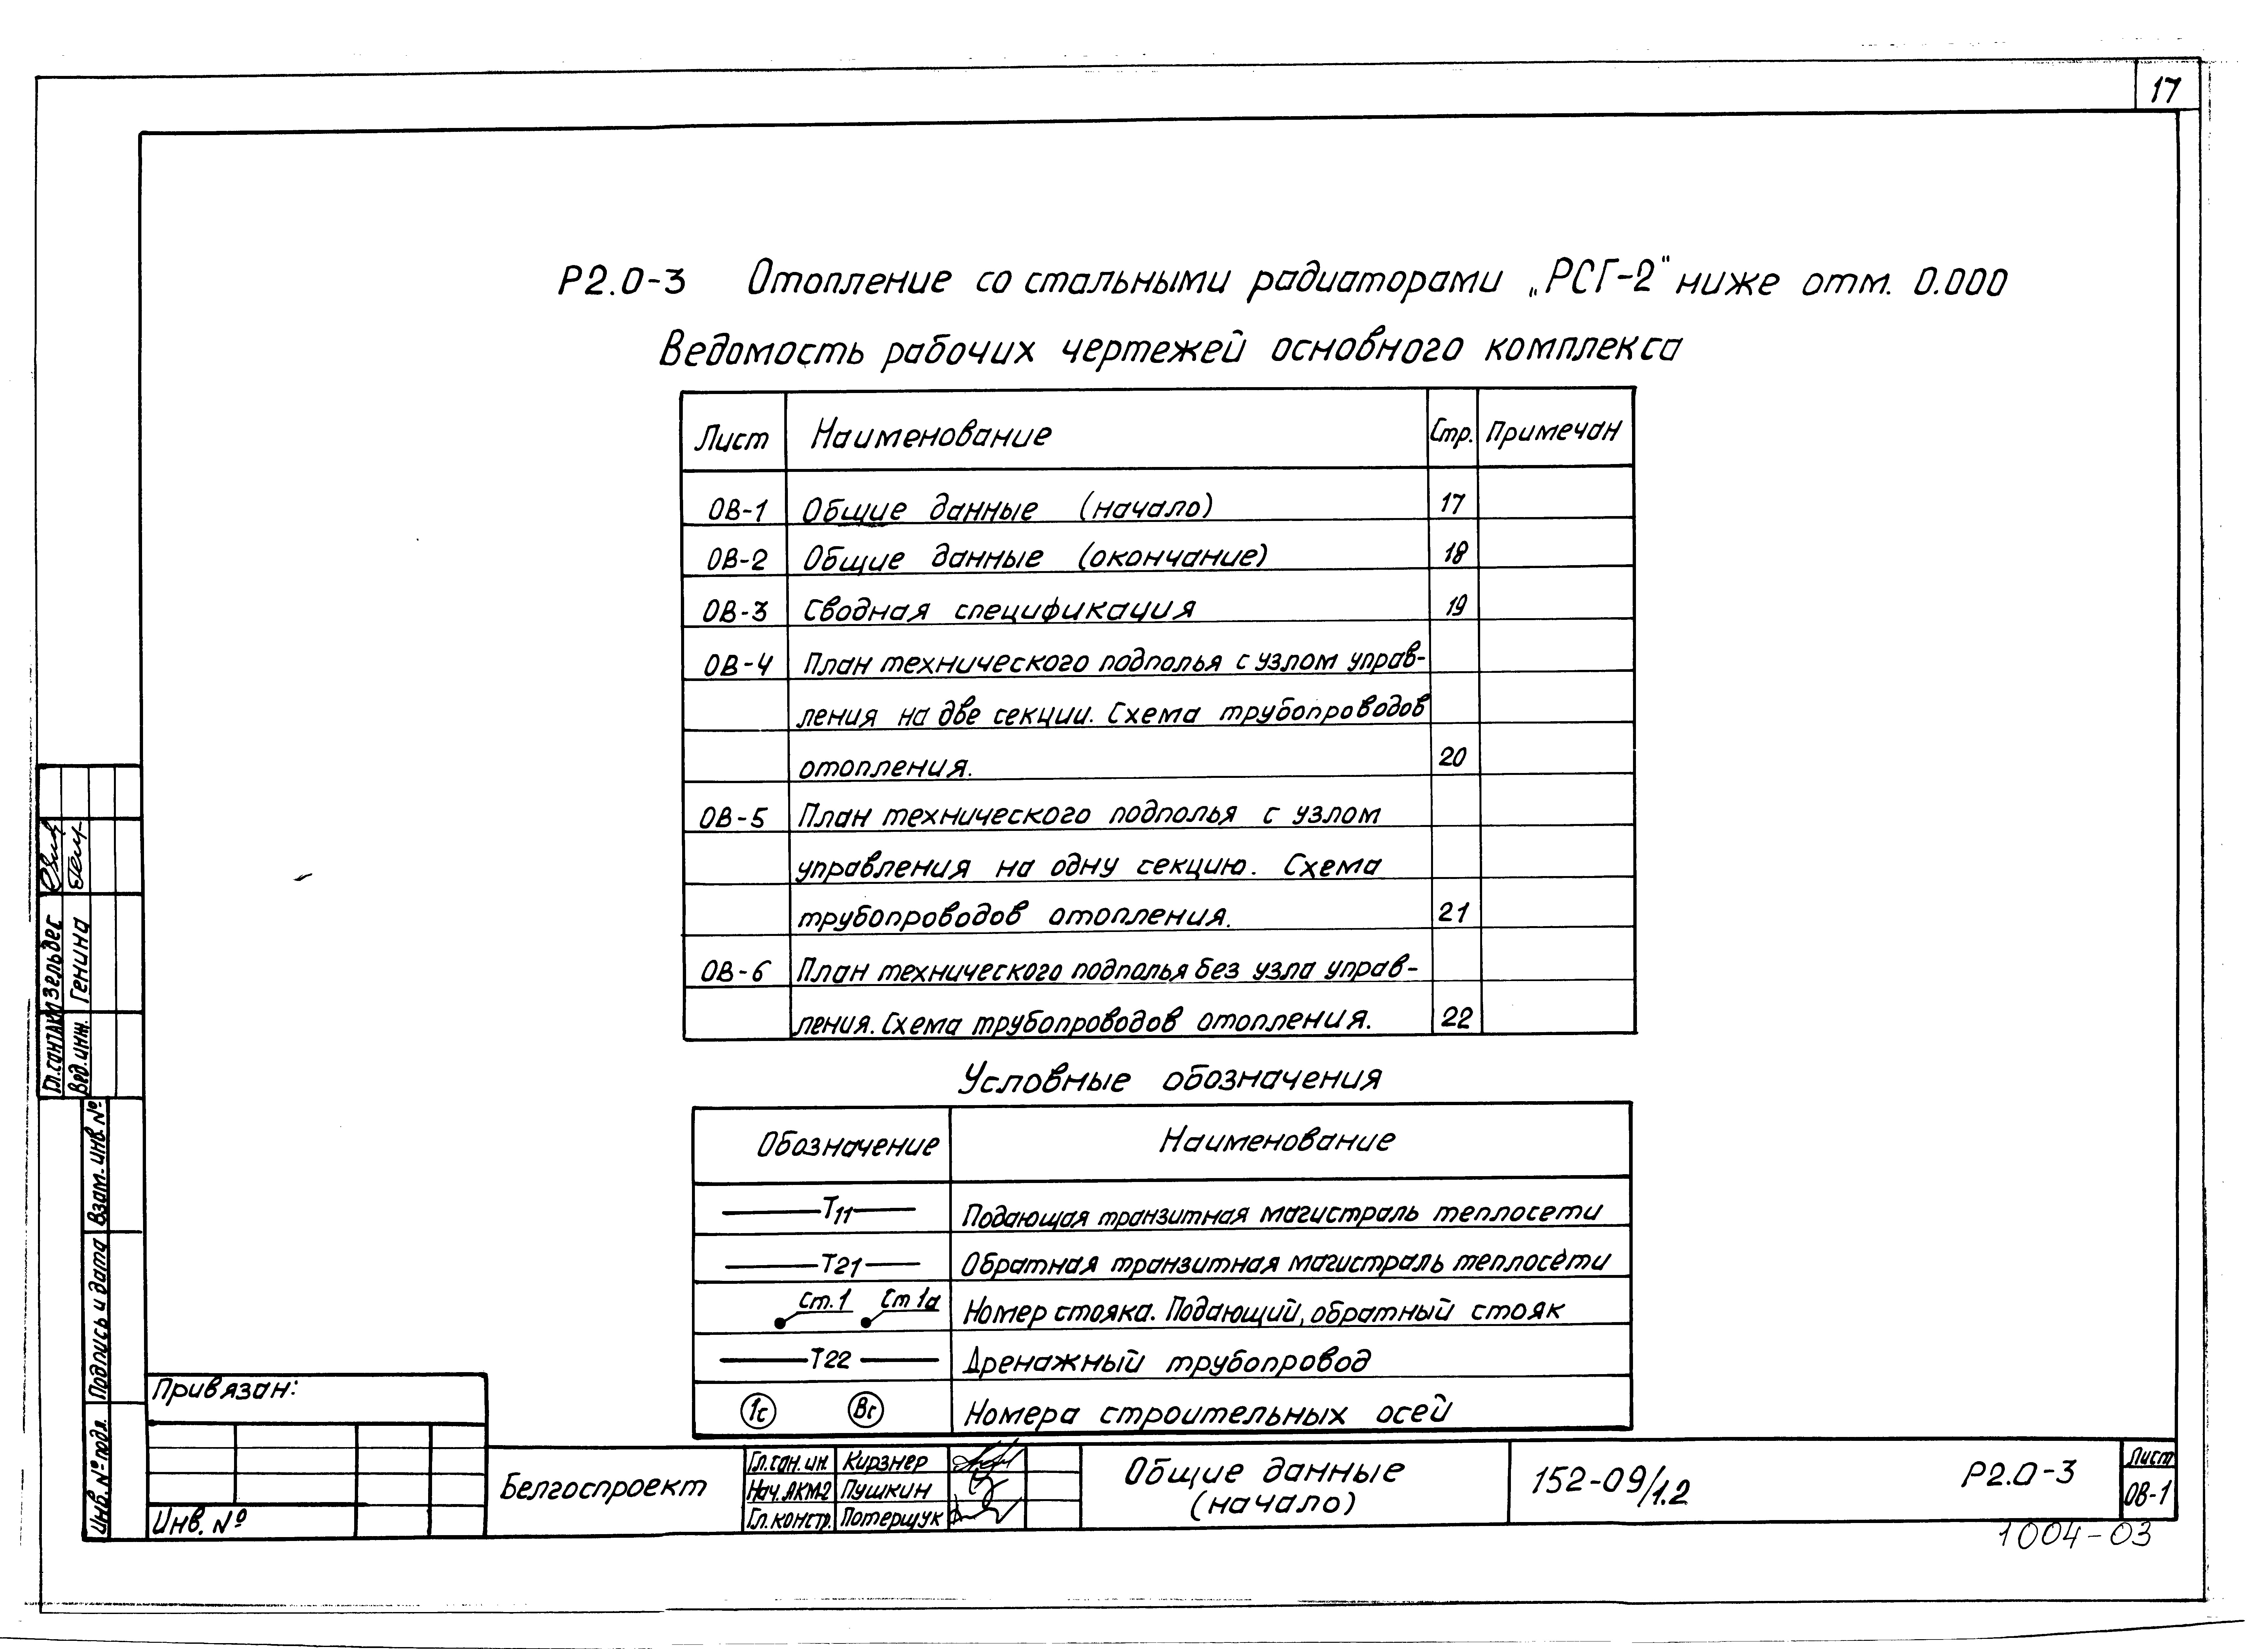 17
Р2.0-3 Отопление со стальными радиаторами „РСГ-2" ниже отм. 0.000
Ведомость рабочих чертежей основного комплекса
Лист Наименование Стр. Примечан
ОВ-1 Общие данные (начало) 17
ОВ-2 Общие данные (окончание) 18
ОВ-3 Сводная спецификация 19
ОВ-4 План технического подполья с узлом управ-
ления на две секции. Схема трубопроводов
отопления. 20
ОВ-5 План технического подполья с узлом
управления на одну секцию. Схема
трубопроводов отопления. 21
ОВ-6 План технического подполья без узла управ-
ления. Схема трубопроводов отопления. 22
Условные обозначения
Обозначение Наименование
Т11 Подающая транзитная магистраль теплосети
Т21 Обратная транзитная магистраль теплосети
Ст.1 Ст 1а Номер стояка. Подающий, обратный стояк
Т22 Дренажный трубопровод
1с Вс Номера строительных осей
Гл.сантАКМ Зельдес
Вед.инж. Генина
Взам. инв. №
Подпись и дата
Инв. № подл.
Привязан:
Инв. №
Белгоспроект
Гл.сан.ин. Кирзнер
Нач.АКМ-2 Пушкин
Гл.констр. Потерщук
Общие данные
(начало)
152-09/1.2
Р2.0-3
Лист
ОВ-1
1004-03